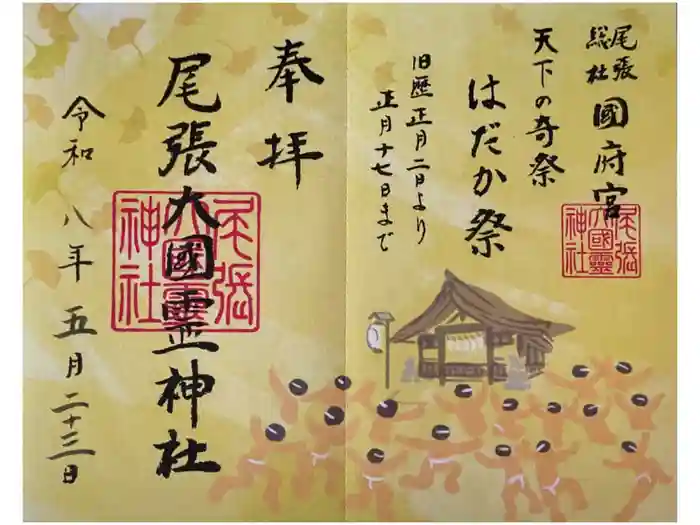 尾張
総社
國府宮
天下の奇祭
はだか祭
旧暦正月二日より
正月十七日まで
尾張
大國霊
神社
奉拝
尾張大國霊神社
尾張
大國靈
神社
令和八年五月二十三日